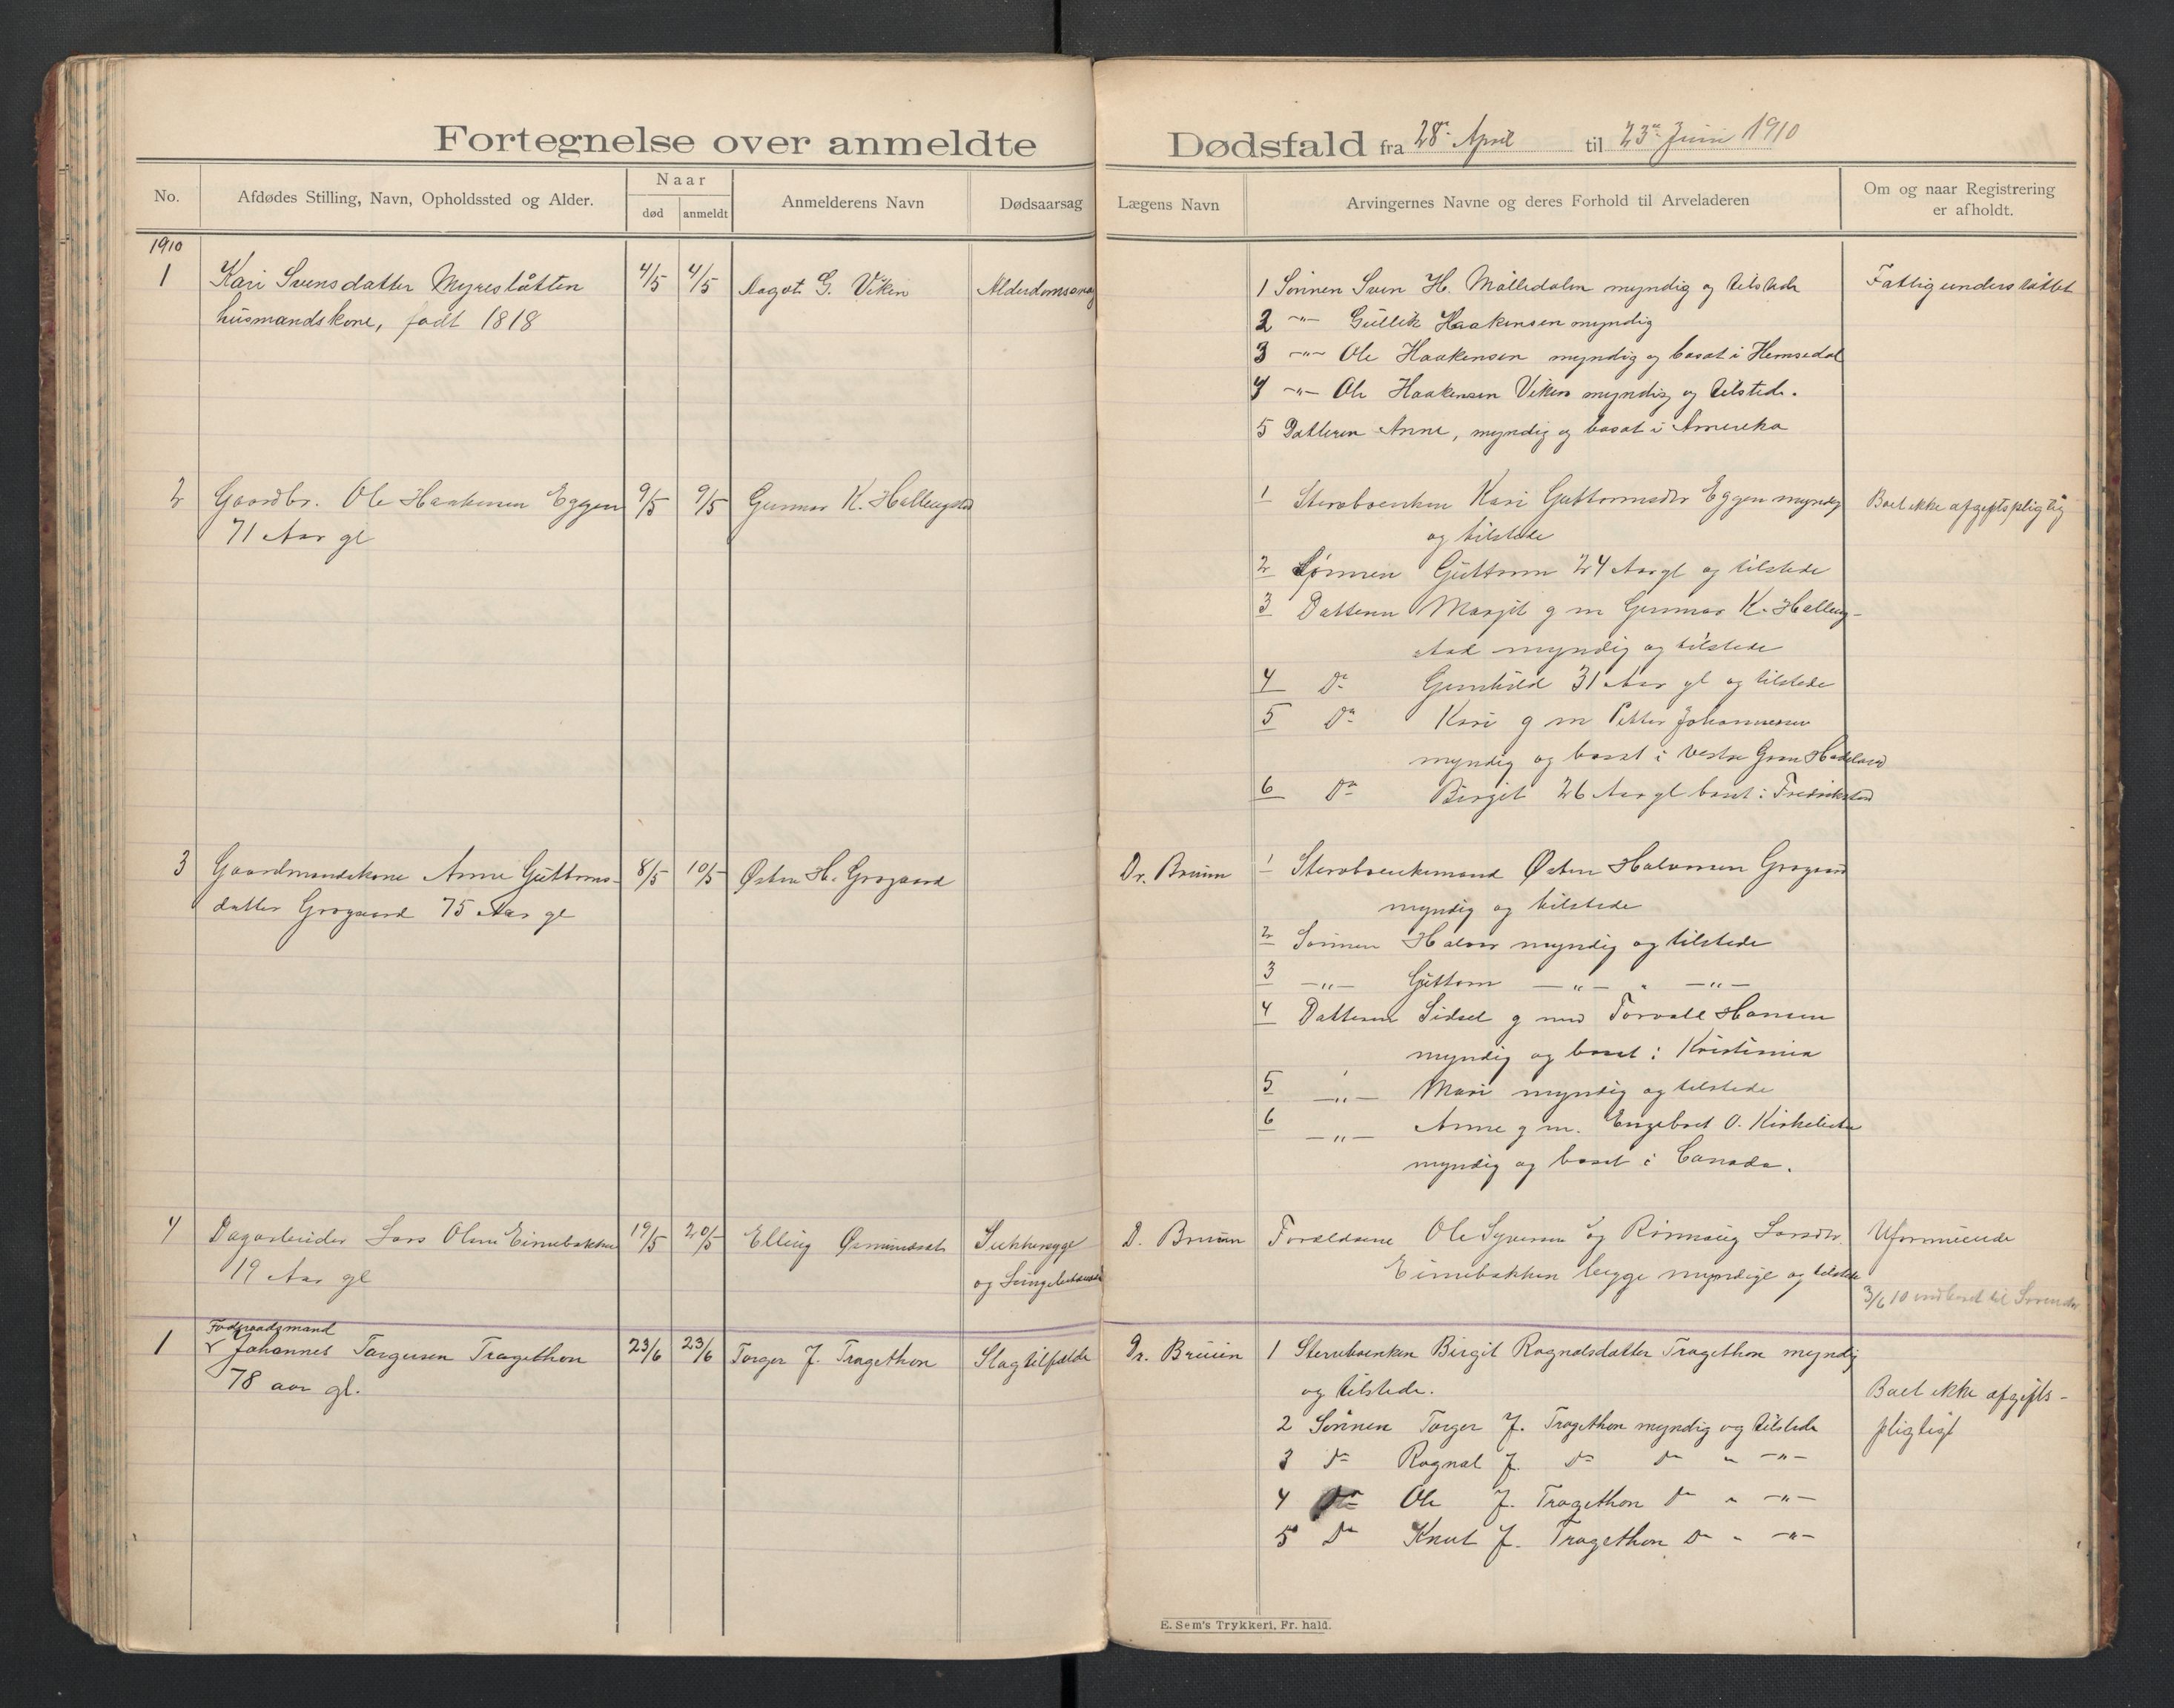 Fortegnelse over anmeldte Dødsfald fra 28de April til 23de Juni 1910
No.
Afdødes Stilling, Navn, Opholdssted og Alder.
Naar
død
anmeldt
Anmelderens Navn
Dødsaarsag
Lægens Navn
Arvingernes Navne og deres Forhold til Arveladeren
Om og naar Registrering
er afholdt.
1910
1 Kari Svensdatter Myreslåtten 4/5 4/5 Aagot G. Viken Alderdomssvag
husmandskone, født 1818
1 Sønnen Sven H. Mølledalen myndig og tilstede
Fattigunderstøttet
2 -"- Gullik Haakensen myndig
3 -"- Ole Haakensen myndig og bosat i Hemsedal
4 -"- Ole Haakensen Viken myndig og tilstede.
5 Datteren Anne, myndig og bosat i Amerika
2 Gaardbr. Ole Haakensen Eggen 9/5 9/5 Gunnar K. Hallingstad
71 Aar gl
1 Stervboenken Kari Guttormsdtr Eggen myndig
og tilstede
Boet ikke afgiftspligtig
2 Sønnen Guttorm 24 Aar gl og tilstede
3 Datteren Margit g m Gunnar K. Halling-
stad myndig og tilstede
4 Do Gunhild 31 Aar gl og tilstede
5 Do Kari g m Petter Johannesen
myndig og bosat i Vestre Gran Hadeland
6 Do Birgit 26 Aar gl bosat i Fredrikstad
3 Gaardmandskone Anne Guttorms- 8/5 10/5 Østen H. Grøgaard
datter Grøgaard 75 Aar gl
Dr. Bruun
1 Stervboenkemand Østen Halvorsen Grøgaard
myndig og tilstede
2 Sønnen Halvor myndig og tilstede
3 -"- Guttorm -"- " -"-
4 Datteren Sidsel g med Torvald Hansen
myndig og bosat i Kristiania
5 -"- Mari myndig og tilstede
6 -"- Anne g m. Engebret O. Kirkelie
myndig og bosat i Canada.
4 Dagarbeider Lars Olsen Eimebakken 19/5 20/5 Elling
19 Aar gl
Sukkersyge
og
D. Bruun
Forældrene Ole Syversen og Rønnaug Larsdtr.
Eimebakken begge myndige og tilstede
Uformuende
3/6 10 indberet til
1 Føderaadsmand
Johannes Torgersen Tragethon 23/6 23/6 Torger J. Tragethon Slagtilfælde
78 aar gl.
Dr. Bruun
1 Stervboenken Birgit Ragnalsdatter Tragethon myndig
og tilstede.
Boet ikke afgifts-
pligtigt
2 Sønnen Torger J. Tragethon myndig og tilstede
3 do Ragnal J. do do " -"-
4 do Ole J. Tragethon do " -"-
5 Do Knut J. Tragethon Do " -"-
E. Sem's Trykkeri, Fr. hald.